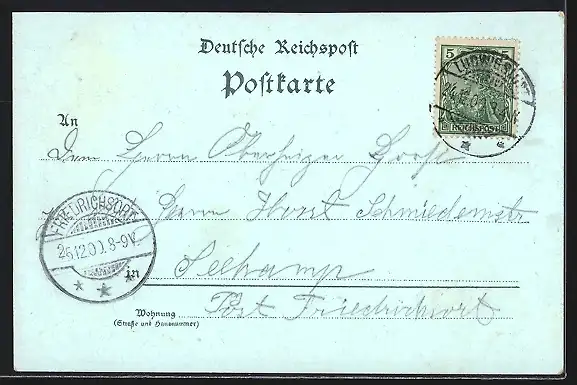 Deutsche Reichspost
Postkarte
5 5
REICHSPOST
An
Dem Herrn Oberheizer
Herrn Horst Schmiedemstr
FRIEDRICHSORT
26.12.00.8-9V.
in Seekamp
Post Friedrichsort
Wohnung
(Straße und Hausnummer)